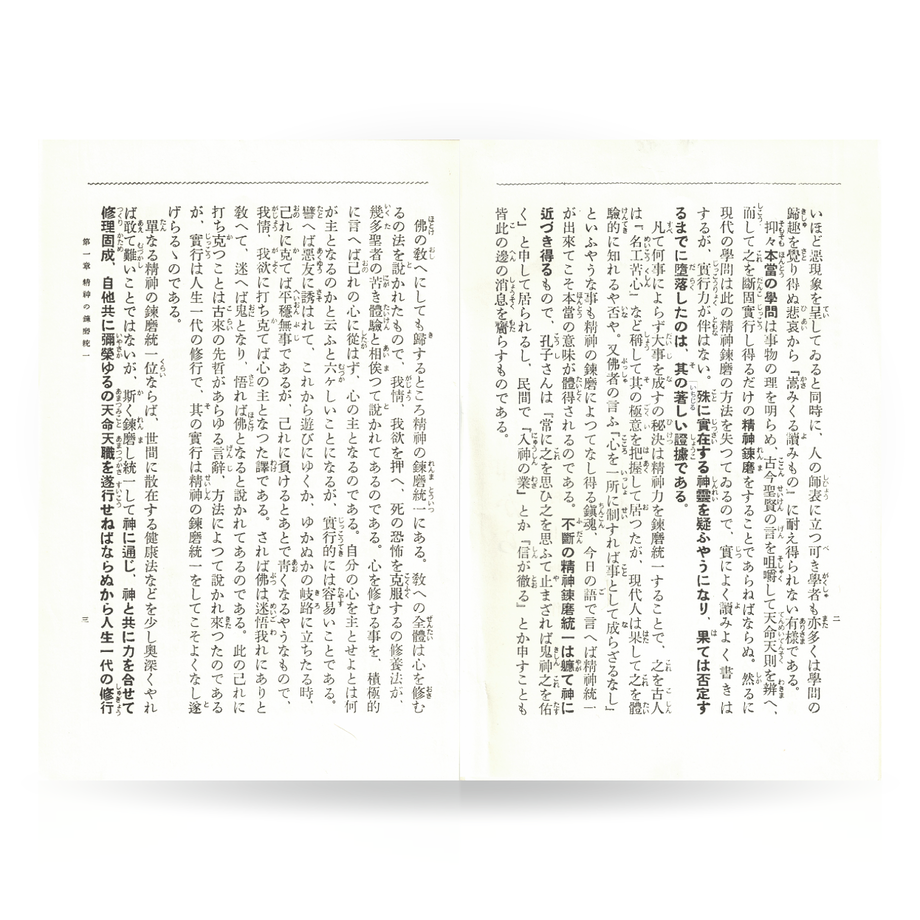 いほど惡現象を呈してゐると同時に、人の師表に立つ可き學者も亦多くは學問の
歸趣を覺り得ぬ悲哀から『嵩みくる讀みもの』に耐え得られない有樣である。
抑々本當の學問は事物の理を明らめ、古今聖賢の言を咀嚼して天命天則を辨へ、
而して之を斷固實行し得るだけの精神鍊磨をすることであらねばならぬ。然るに
現代の學問は此の精神鍊磨の方法を失つてゐるので、實によく讀みよく書きは
するが、實行力が伴はない。殊に實在する神靈を疑ふやうになり、果ては否定す
るまでに墮落したのは、其の著しい證據である。
凡て何事によらず大事を成すの秘決は精神力を鍊磨統一することで、之を古人
は『名工苦心』など稱して其の極意を把握して居つたが、現代人は果して之を體
驗的に知れるや否や。又佛者の言ふ『心を一所に制すれば事として成らざるなし』
といふやうな事も精神の鍊磨によつてなし得る鎭魂、今日の語で言へば精神統一
が出來てこそ本當の意味が體得されるのである。不斷の精神鍊磨統一は纏て神に
近づき得るもので、孔子さんは『常に之を思ひ之を思ふて止まざれば鬼神之を佑
く』と申して居られるし、民間で『入神の業』とか『信が徹る』とか申すことも
皆此の邊の消息を齎らすものである。
二
佛の敎へにしても歸するところ精神の鍊磨統一にある。敎への全體は心を修む
るの法を說かれたもので、我情、我欲を押へ、死の恐怖を克服するの修養法が、
幾多聖者の苦き體驗と相俟つて說かれてあるのである。心を修むる事を、積極的
に言へば己れの心に從はず、心の主となるのである。自分の心を主とせよとは何
が主となるのかと云ふと六ヶしいことになるが、實行的には容易いことである。
譬へば惡友に誘はれて、これから遊びにゆくか、ゆかぬかの岐路に立ちたる時、
己れに克てば平穩無事であるが、己れに負けるとあとで靑くなるやうなもので、
我情、我欲に打ち克てば心の主となつた譯である。されば佛は迷悟我にありと
敎へて、迷へば鬼となり、悟れば佛となると說かれてあるのである。此の己れに
打ち克つことは古來の先哲があらゆる言辭、方法によつて說かれ來つたのである
が、實行は人生一代の修行で、其の實行は精神の鍊磨統一をしてこそよくなし遂
げらるゝのである。
單なる精神の鍊磨統一位ならば、世間に散在する健康法などを少し奧深くやれ
ば敢て難いことではないが、斯く鍊磨し統一して神に通じ、神と共に力を合せて
修理固成、自他共に彌榮ゆるの天命天職を遂行せねばならぬから人生一代の修行
第一章 精神の鍊磨統一
三